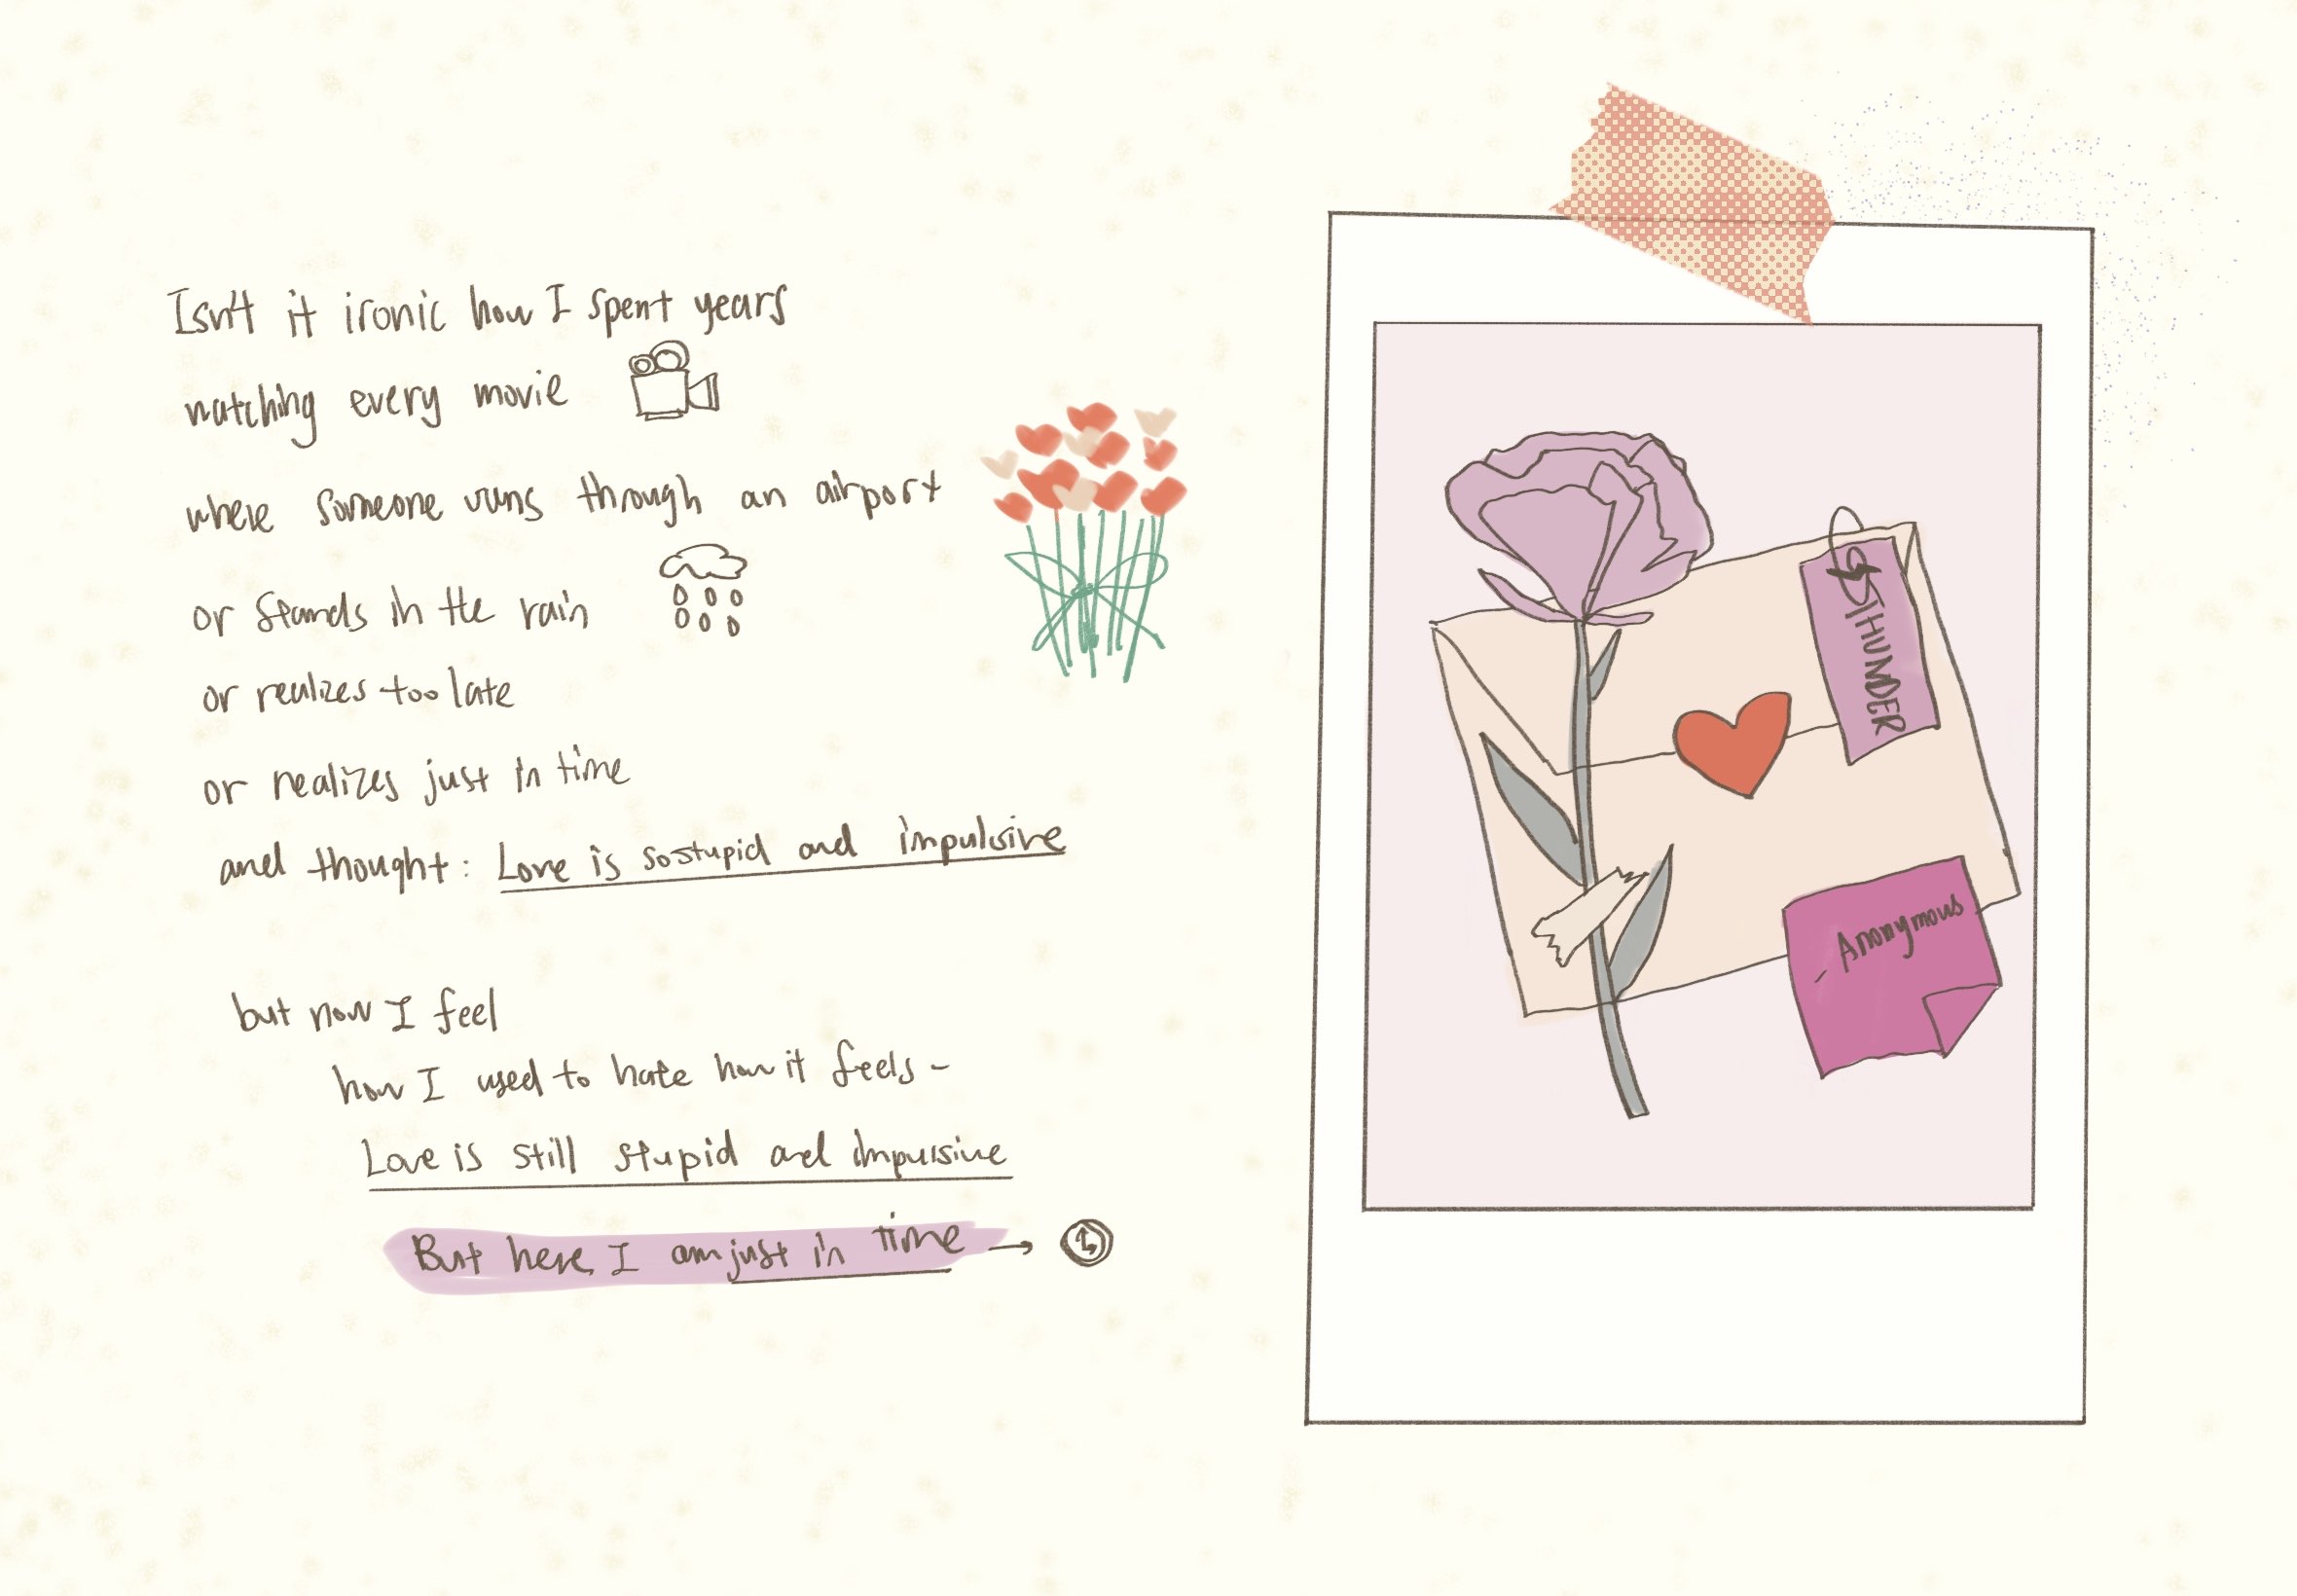 Isn't it ironic how I spent years
watching every movie
where someone runs through an airport
or stands in the rain
or realizes too late
or realizes just in time
and thought: Love is so stupid and impulsive
but now I feel
how I used to hate how it feels -
Love is still stupid and impulsive
But here I am just in time →
THUNDER
- Anonymous